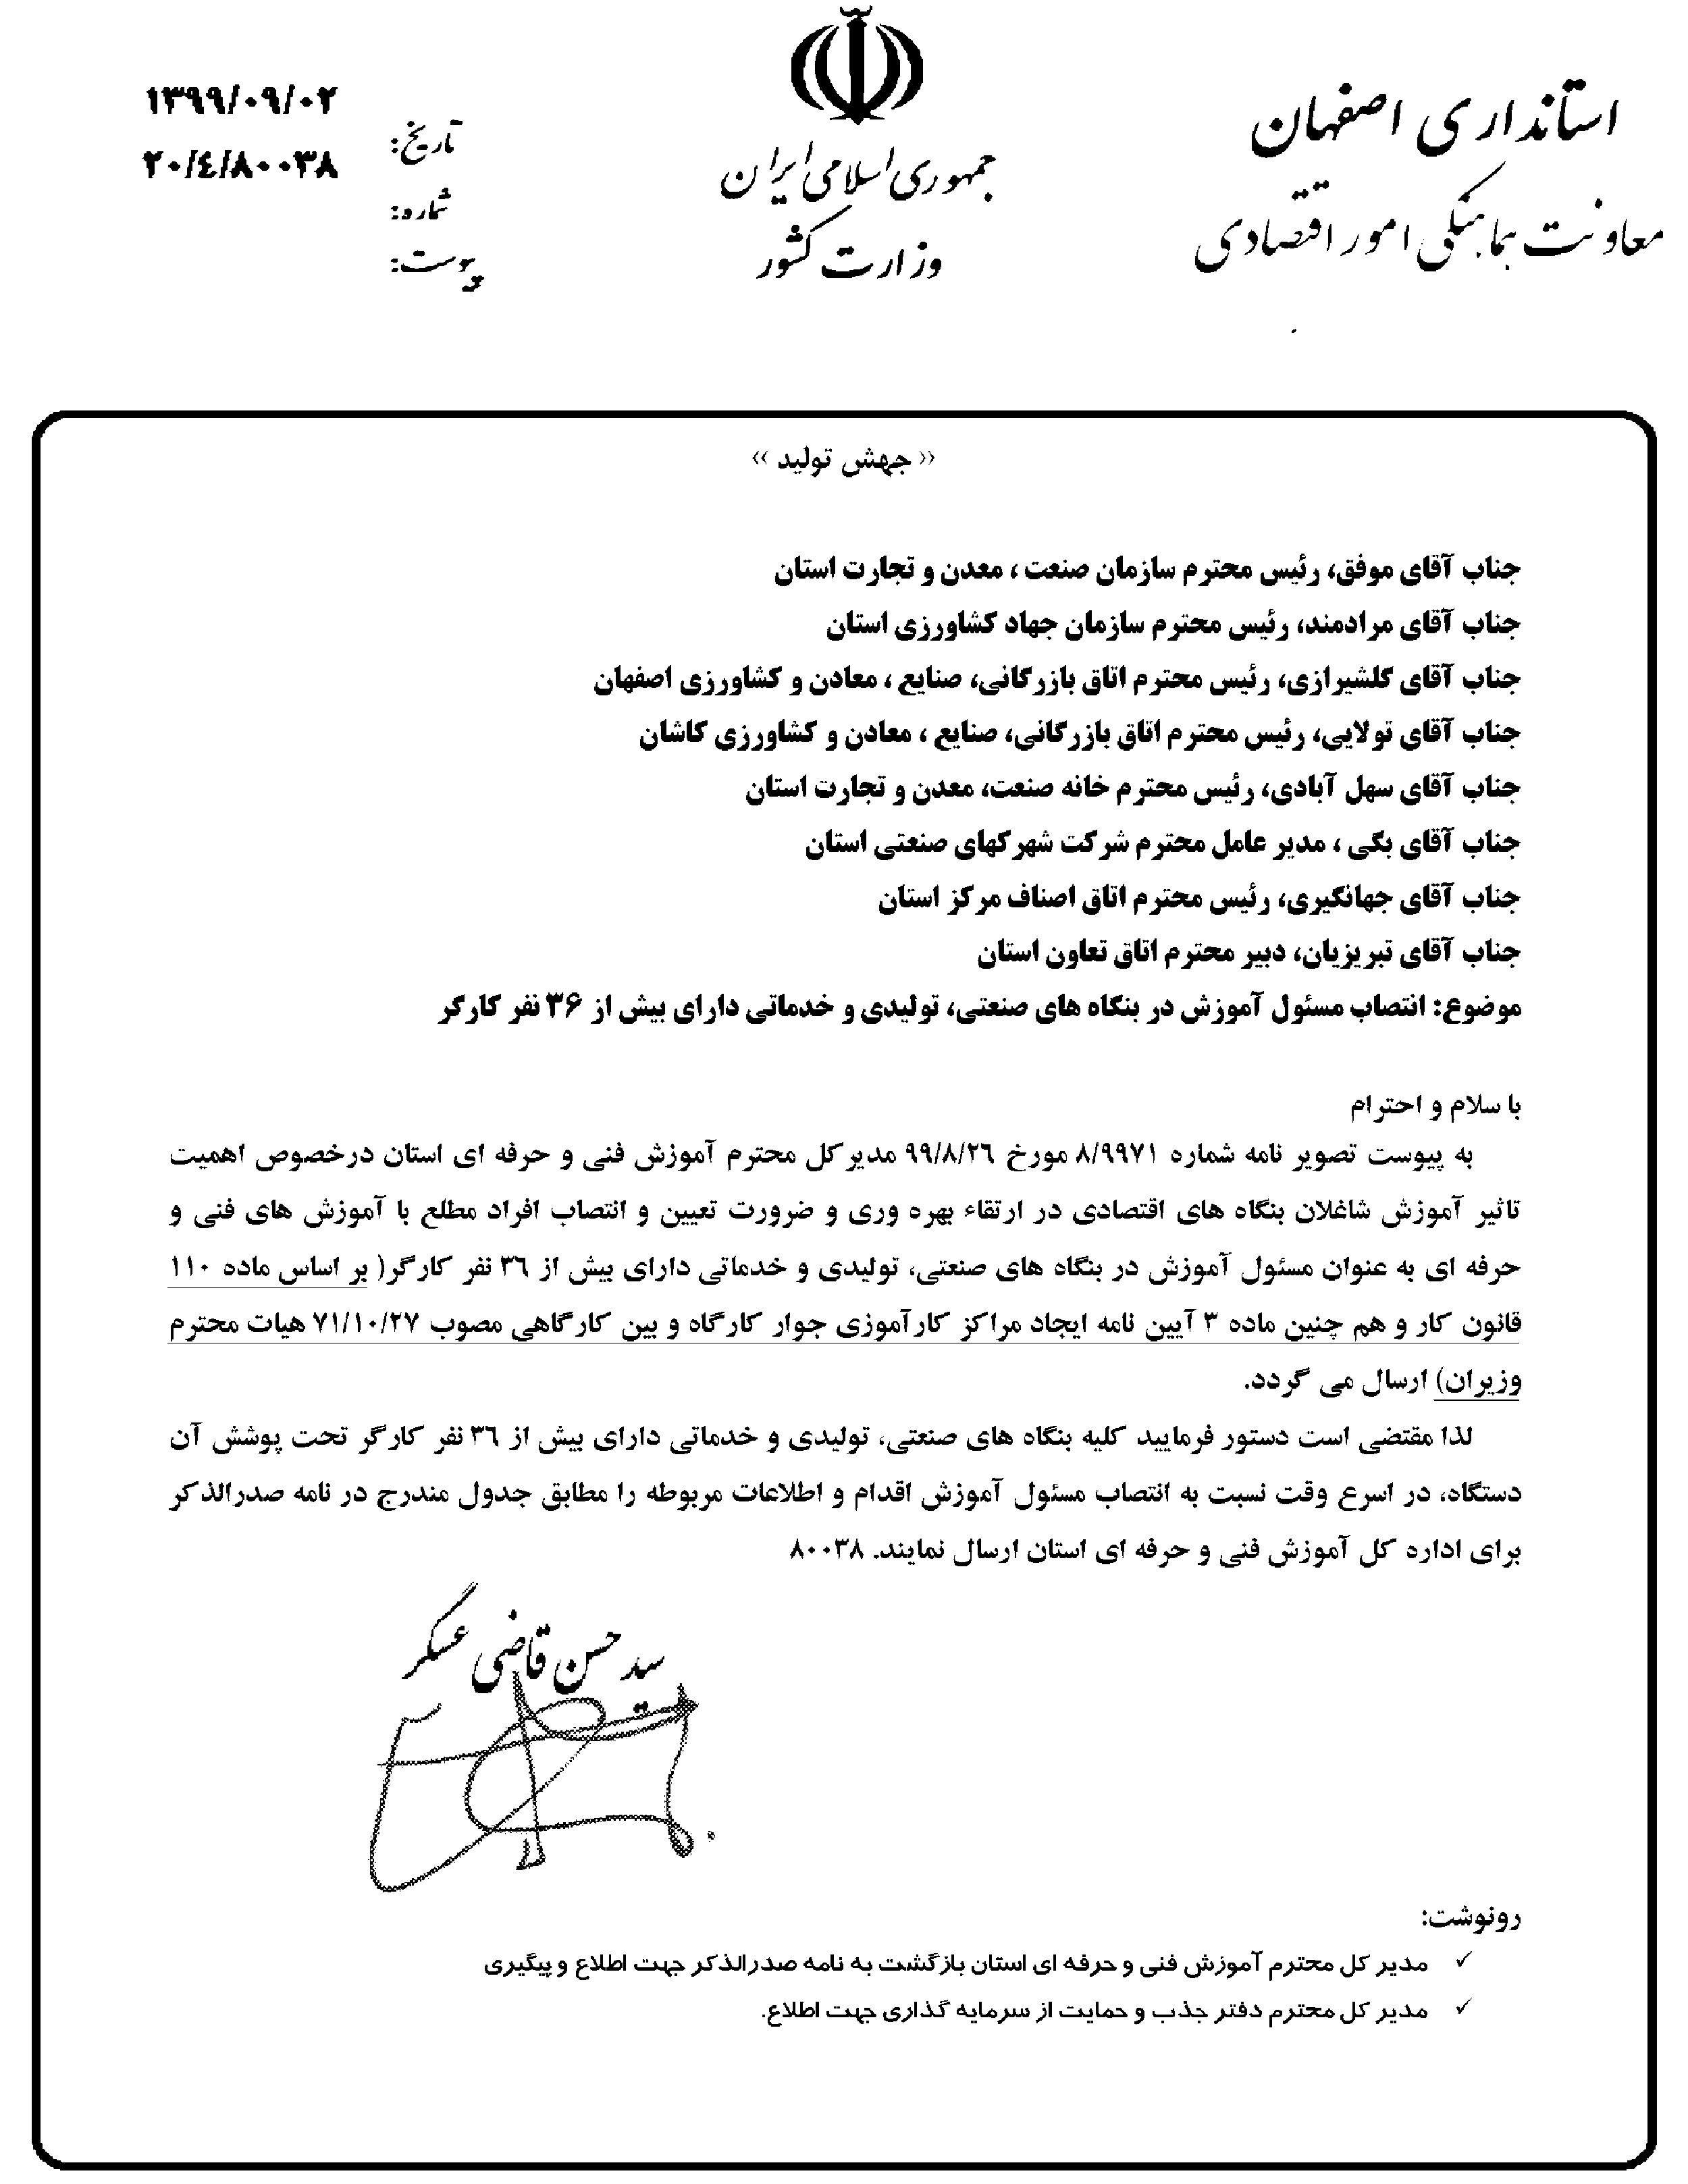 استانداری اصفهان
معاونت هماهنگی امور اقتصادی
جمهوری اسلامی ایران
وزارت کشور
تاریخ: ۱۳۹۹/۰۹/۰۲
شماره: ۲۰/۴/۸۰۰۳۸
پیوست:
‹‹ جهش تولید ››
جناب آقای موفق، رئیس محترم سازمان صنعت ، معدن و تجارت استان
جناب آقای مرادمند، رئیس محترم سازمان جهاد کشاورزی استان
جناب آقای گلشیرازی، رئیس محترم اتاق بازرگانی، صنایع ، معادن و کشاورزی اصفهان
جناب آقای تولایی، رئیس محترم اتاق بازرگانی، صنایع ، معادن و کشاورزی کاشان
جناب آقای سهل آبادی، رئیس محترم خانه صنعت، معدن و تجارت استان
جناب آقای بگی ، مدیر عامل محترم شرکت شهرکهای صنعتی استان
جناب آقای جهانگیری، رئیس محترم اتاق اصناف مرکز استان
جناب آقای تبریزیان، دبیر محترم اتاق تعاون استان
موضوع: انتصاب مسئول آموزش در بنگاه های صنعتی، تولیدی و خدماتی دارای بیش از ۳۶ نفر کارگر
با سلام و احترام
به پیوست تصویر نامه شماره ۸/۹۹۷۱ مورخ ۹۹/۸/۲۶ مدیرکل محترم آموزش فنی و حرفه ای استان درخصوص اهمیت
تاثیر آموزش شاغلان بنگاه های اقتصادی در ارتقاء بهره وری و ضرورت تعیین و انتصاب افراد مطلع با آموزش های فنی و
حرفه ای به عنوان مسئول آموزش در بنگاه های صنعتی، تولیدی و خدماتی دارای بیش از ۳۶ نفر کارگر( بر اساس ماده ۱۱۰
قانون کار و هم چنین ماده ۳ آیین نامه ایجاد مراکز کارآموزی جوار کارگاه و بین کارگاهی مصوب ۷۱/۱۰/۲۷ هیات محترم
وزیران) ارسال می گردد.
لذا مقتضی است دستور فرمایید کلیه بنگاه های صنعتی، تولیدی و خدماتی دارای بیش از ۳۶ نفر کارگر تحت پوشش آن
دستگاه، در اسرع وقت نسبت به انتصاب مسئول آموزش اقدام و اطلاعات مربوطه را مطابق جدول مندرج در نامه صدرالذکر
برای اداره کل آموزش فنی و حرفه ای استان ارسال نمایند. ۸۰۰۳۸
سید حسن قاضی عسگر
رونوشت:
✓ مدیر کل محترم آموزش فنی و حرفه ای استان بازگشت به نامه صدرالذکر جهت اطلاع و پیگیری
✓ مدیر کل محترم دفتر جذب و حمایت از سرمایه گذاری جهت اطلاع.